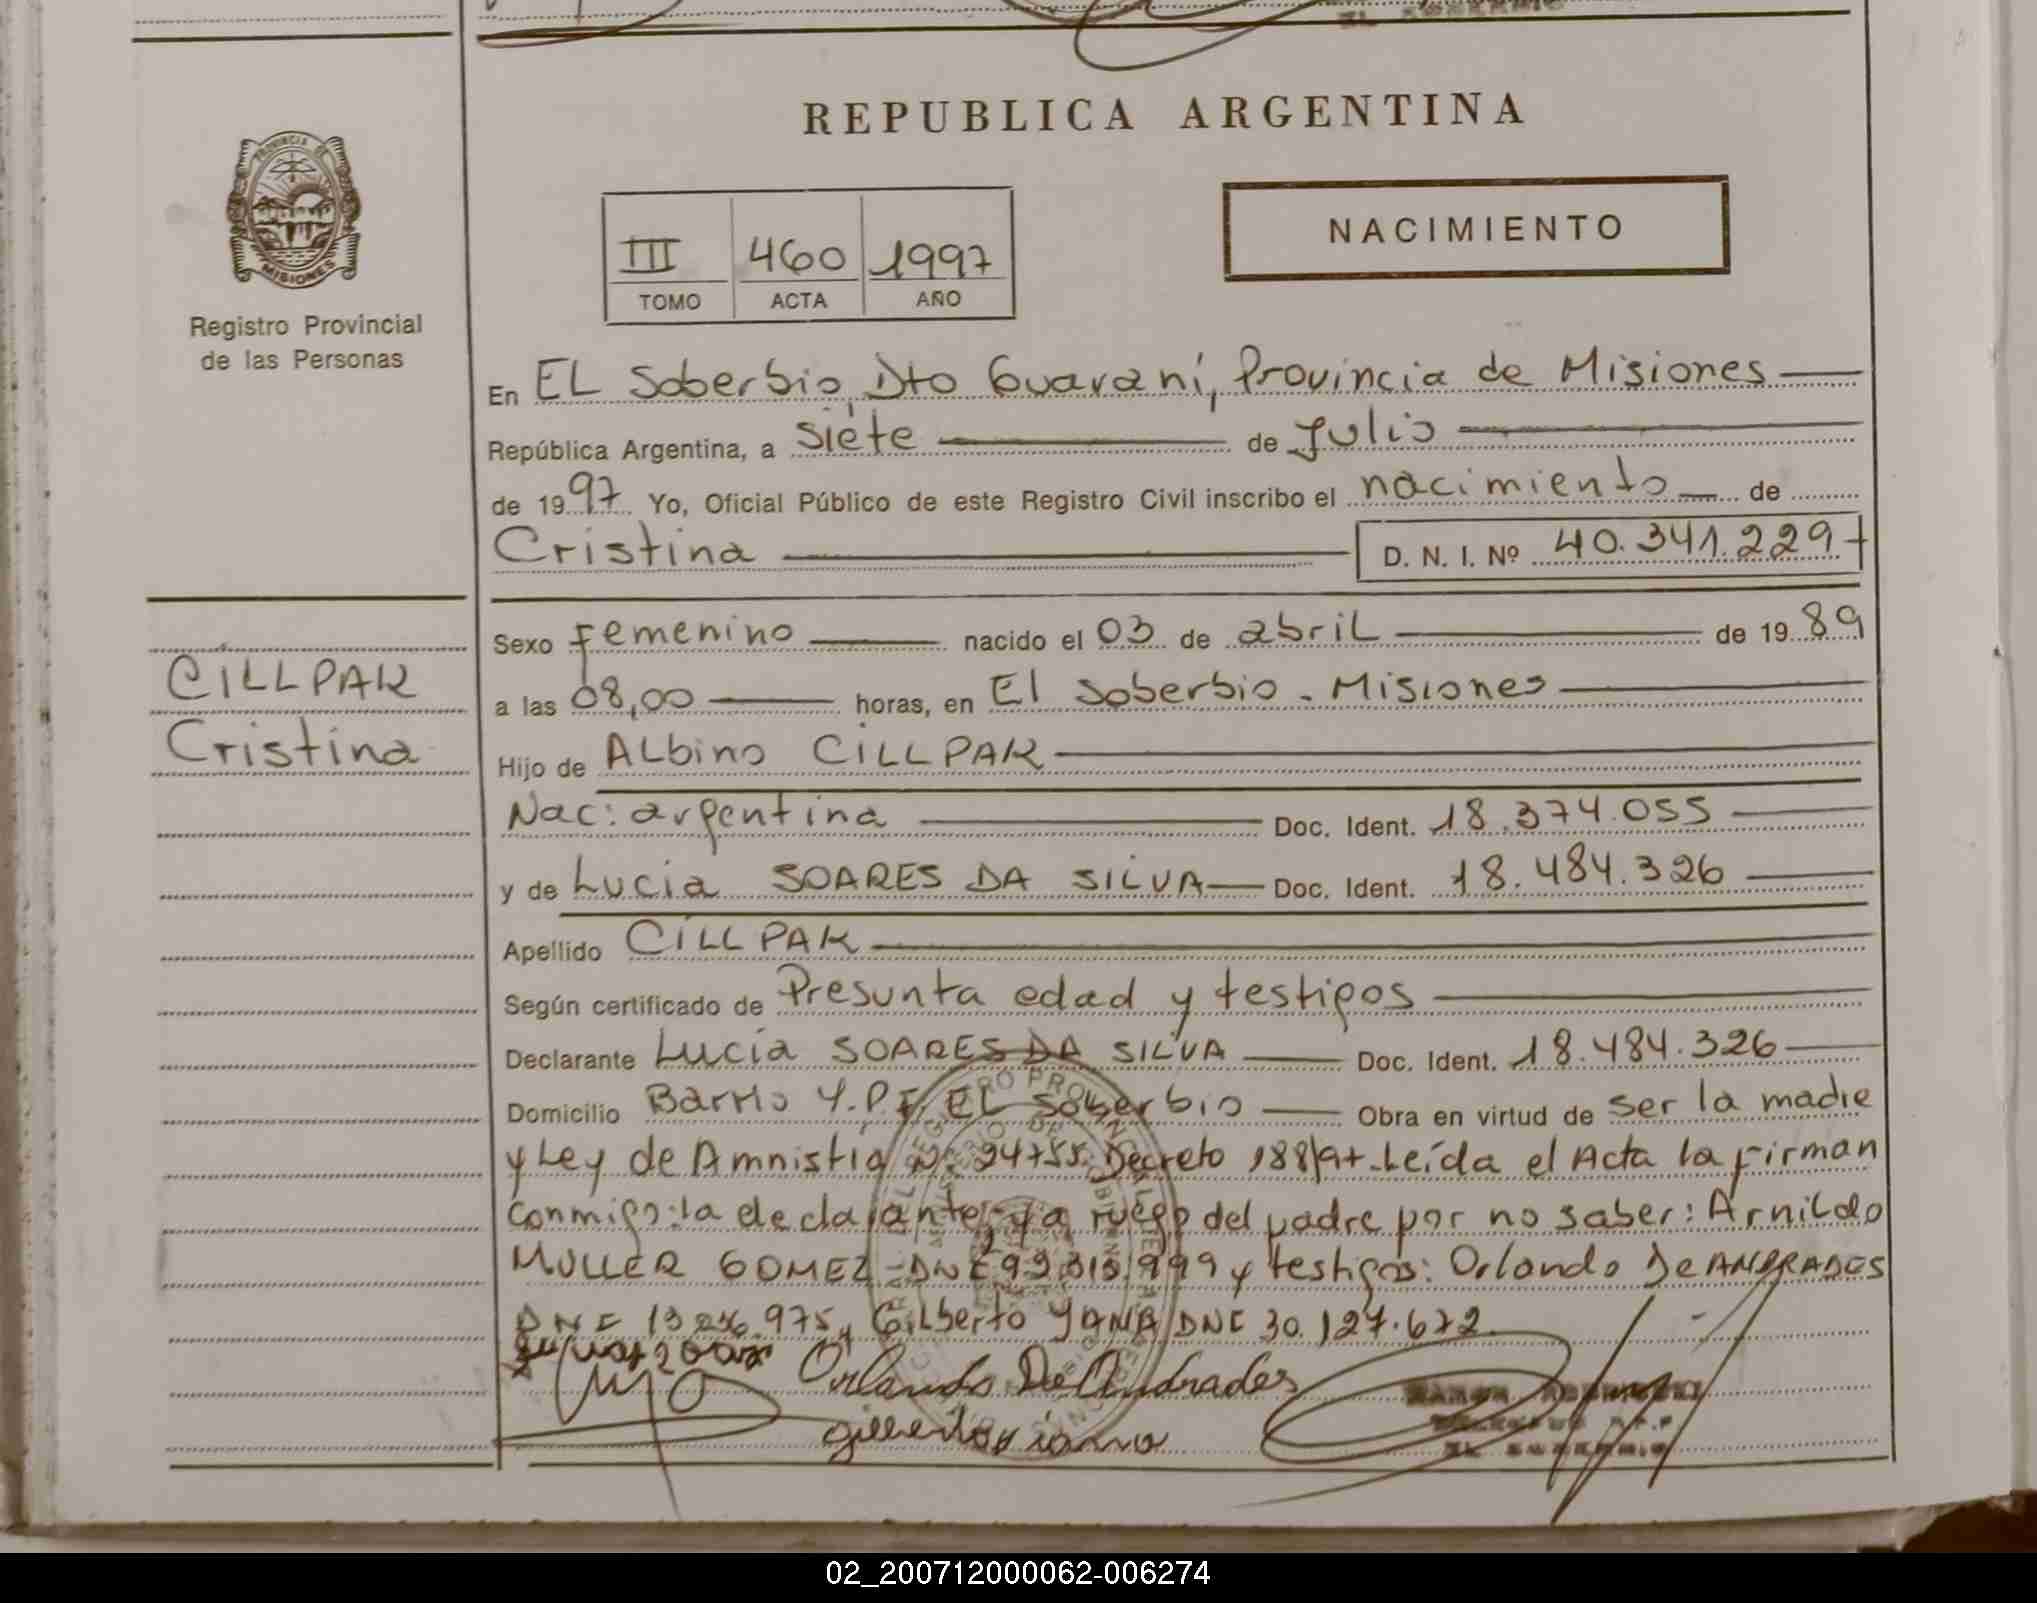 REPUBLICA ARGENTINA
PROVINCIA DE
MISIONES
Registro Provincial
de las Personas
III 460 1997
TOMO ACTA AÑO
NACIMIENTO
En EL Soberbio, Dto Guaraní, Provincia de Misiones
República Argentina, a siete de Julio
de 1997 Yo, Oficial Público de este Registro Civil inscribo el nacimiento de
Cristina D. N. I. Nº 40.341.229
CILLPAK
Cristina
Sexo Femenino nacido el 03 de abril de 1989
a las 08,00 horas, en El Soberbio - Misiones
Hijo de ALbino CILLPAK
Nac: argentina Doc. Ident. 18.374.055
y de Lucia SOARES DA SILVA Doc. Ident. 18.484.326
Apellido CILLPAK
Según certificado de Presunta edad y testigos
Declarante Lucia SOARES DA SILVA Doc. Ident. 18.484.326
Domicilio Barrio Y.P.F. EL Soberbio Obra en virtud de ser la madre
y Ley de Amnistia Nº 24755. Decreto 188/97. Leída el Acta la firman
conmigo: la declarante, y a ruego del padre por no saber: Arnildo
MULLER GOMEZ - DNI 93.313.999 y testigos: Orlando De ANDRADES
DNI 13.256.975, Gilberto YANA DNI 30.127.672
Orlando De Andrades
02_200712000062-006274